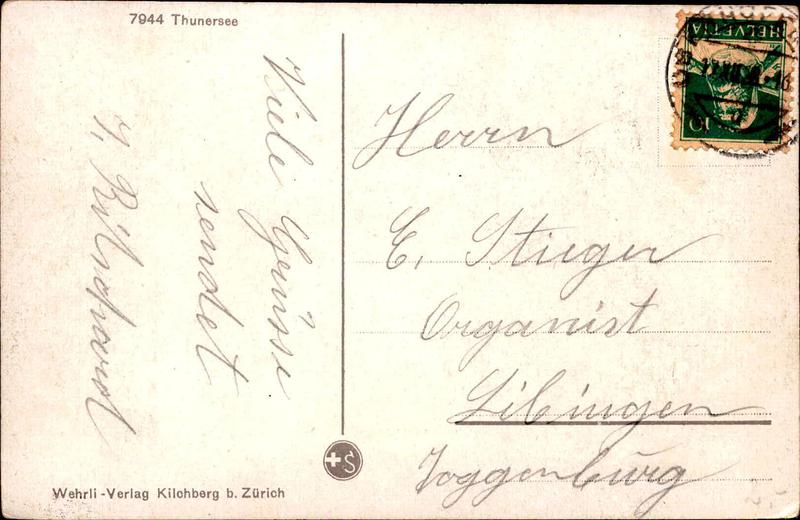 7944 Thunersee
Viele Grüsse
sendet
HELVETIA
10
Herrn
E. Stieger
Organist
Libingen
Toggenburg
Wehrli-Verlag Kilchberg b. Zürich